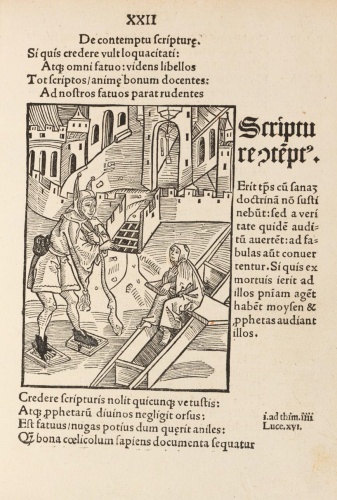 XXII
De contemptu scripturę.
Si quis credere vult loquacitati:
Atqꝫ omni fatuo: videns libellos
Tot scriptos/animę bonum docentes:
Ad nostros fatuos parat rudentes
Scriptu
re ꝯtēpt⁹.
Erit tp̄s cū sanaꝫ
doctrinā nō susti
nebūt: sed a veri
tate quidē audi
tū auertēt: ad fa-
bulas aūt conuer
tentur. Si quis ex
mortuis ierit ad
illos pn̄iam agēt
habēt moysen &
ꝓphetas audiant
illos.
Credere scripturis nolit quicunqꝫ vetustis:
Atqꝫ ꝓphetarū diuinos negligit orsus:
Est fatuus/nugas potius dum quęrit aniles:
Qꝫ bona cœlicolum sapiens documenta sequatur
i. ad thim. iiii
Luce. xvi.